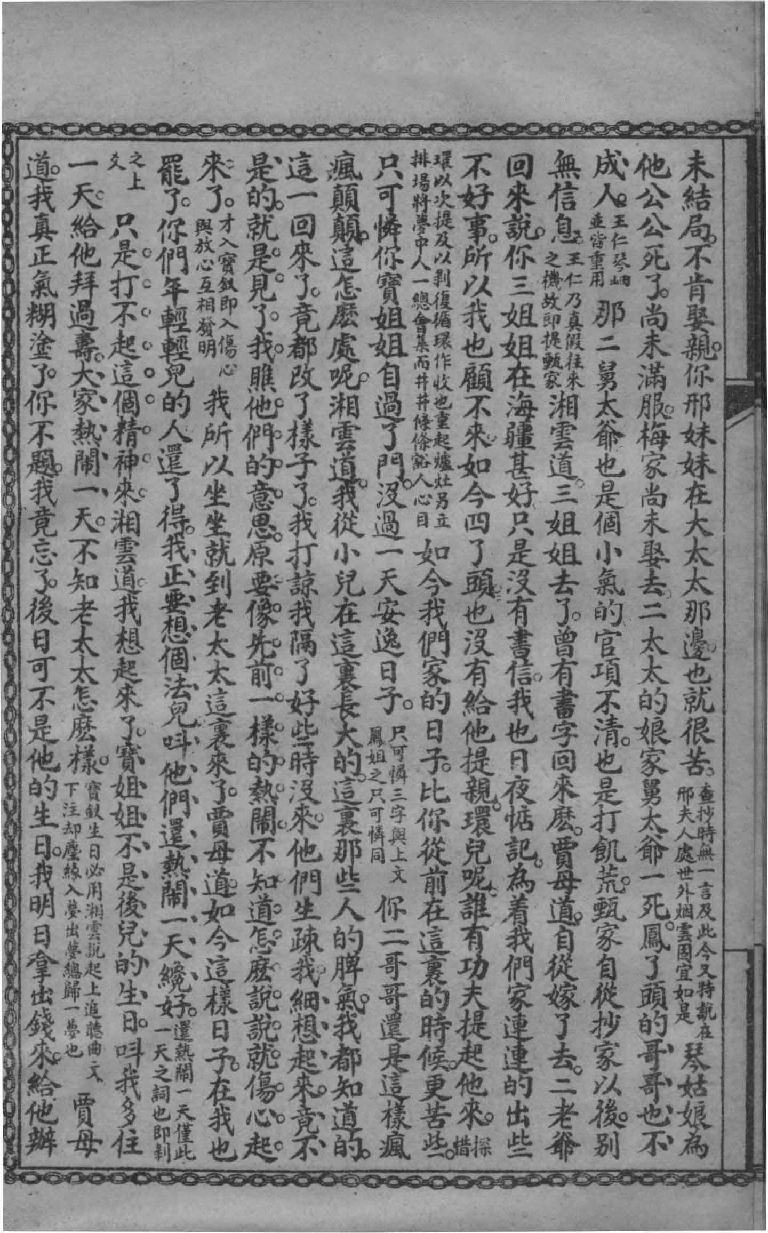 未結局。不肯娶親。你邢妹妹在大太太那邊也就很苦。查抄時無一言及此今又特敘在邢夫人處世外烟雲固宜如是琴姑娘為
他公公死了。尚未滿服。梅家尚未娶去。二太太的娘家舅太爺一死。鳳丫頭的哥哥也不
成人。王仁琴姻並皆重用那二舅太爺也是個小氣的官項不清。也是打飢荒。甄家自從抄家以後別
無信息。王仁乃真假往來之機故即提甄家湘雲道。三姐姐去了。曾有書字回來麽。賈母道。自從嫁了去。二老爺
回來說。你三姐姐在海疆甚好。只是沒有書信。我也日夜惦記。為着我們家連連的出些
不好事。所以我也顧不來。如今四丫頭也沒有給他提親。環兒呢。誰有功夫提起他來。探惜
環以次提及以剥復循環作收也重起爐灶另立排場將夢中人一總會集而井井條條豁人心目如今我們家的日子。比你從前在這裏的時候。更苦些。
只可憐你寶姐姐自過了門。沒過一天安逸日子。只可憐三字與上文鳳姐之只可憐同你二哥哥還是這樣瘋
瘋顛顛。這怎麽處呢。湘雲道。我從小兒在這裏長大的。這裏那些人的脾氣。我都知道的。
這一回來了。竟都改了樣子了。我打諒我隔了好些時沒來。他們生疎我。細想起來。竟不
是的。就是見了我。瞧他們的意思。原要像先前一樣的熱鬧。不知道怎麽說說就傷心起
來了。才入寶釵即入傷心與放心互相發明我所以坐坐就到老太太這裏來了。賈母道。如今這樣日子。在我也
罷了。你們年輕輕兒的人還了得。我正要想個法兒。叫他們還熱鬧一天纔好。還熱鬧一天僅此一天之詞也即剥
之上爻只是打不起這個精神來。湘雲道。我想起來了。寶姐姐不是後兒的生日。叫我多住
一天。給他拜過壽。大家熱鬧一天。不知老太太怎麽樣。寶釵生日必用湘雲說起上追聽曲文下注却塵緣入夢出夢總歸一夢也賈母
道。我真正氣糊塗了。你不題。我竟忘了。後日可不是他的生日。我明日拿出錢來。給他辦